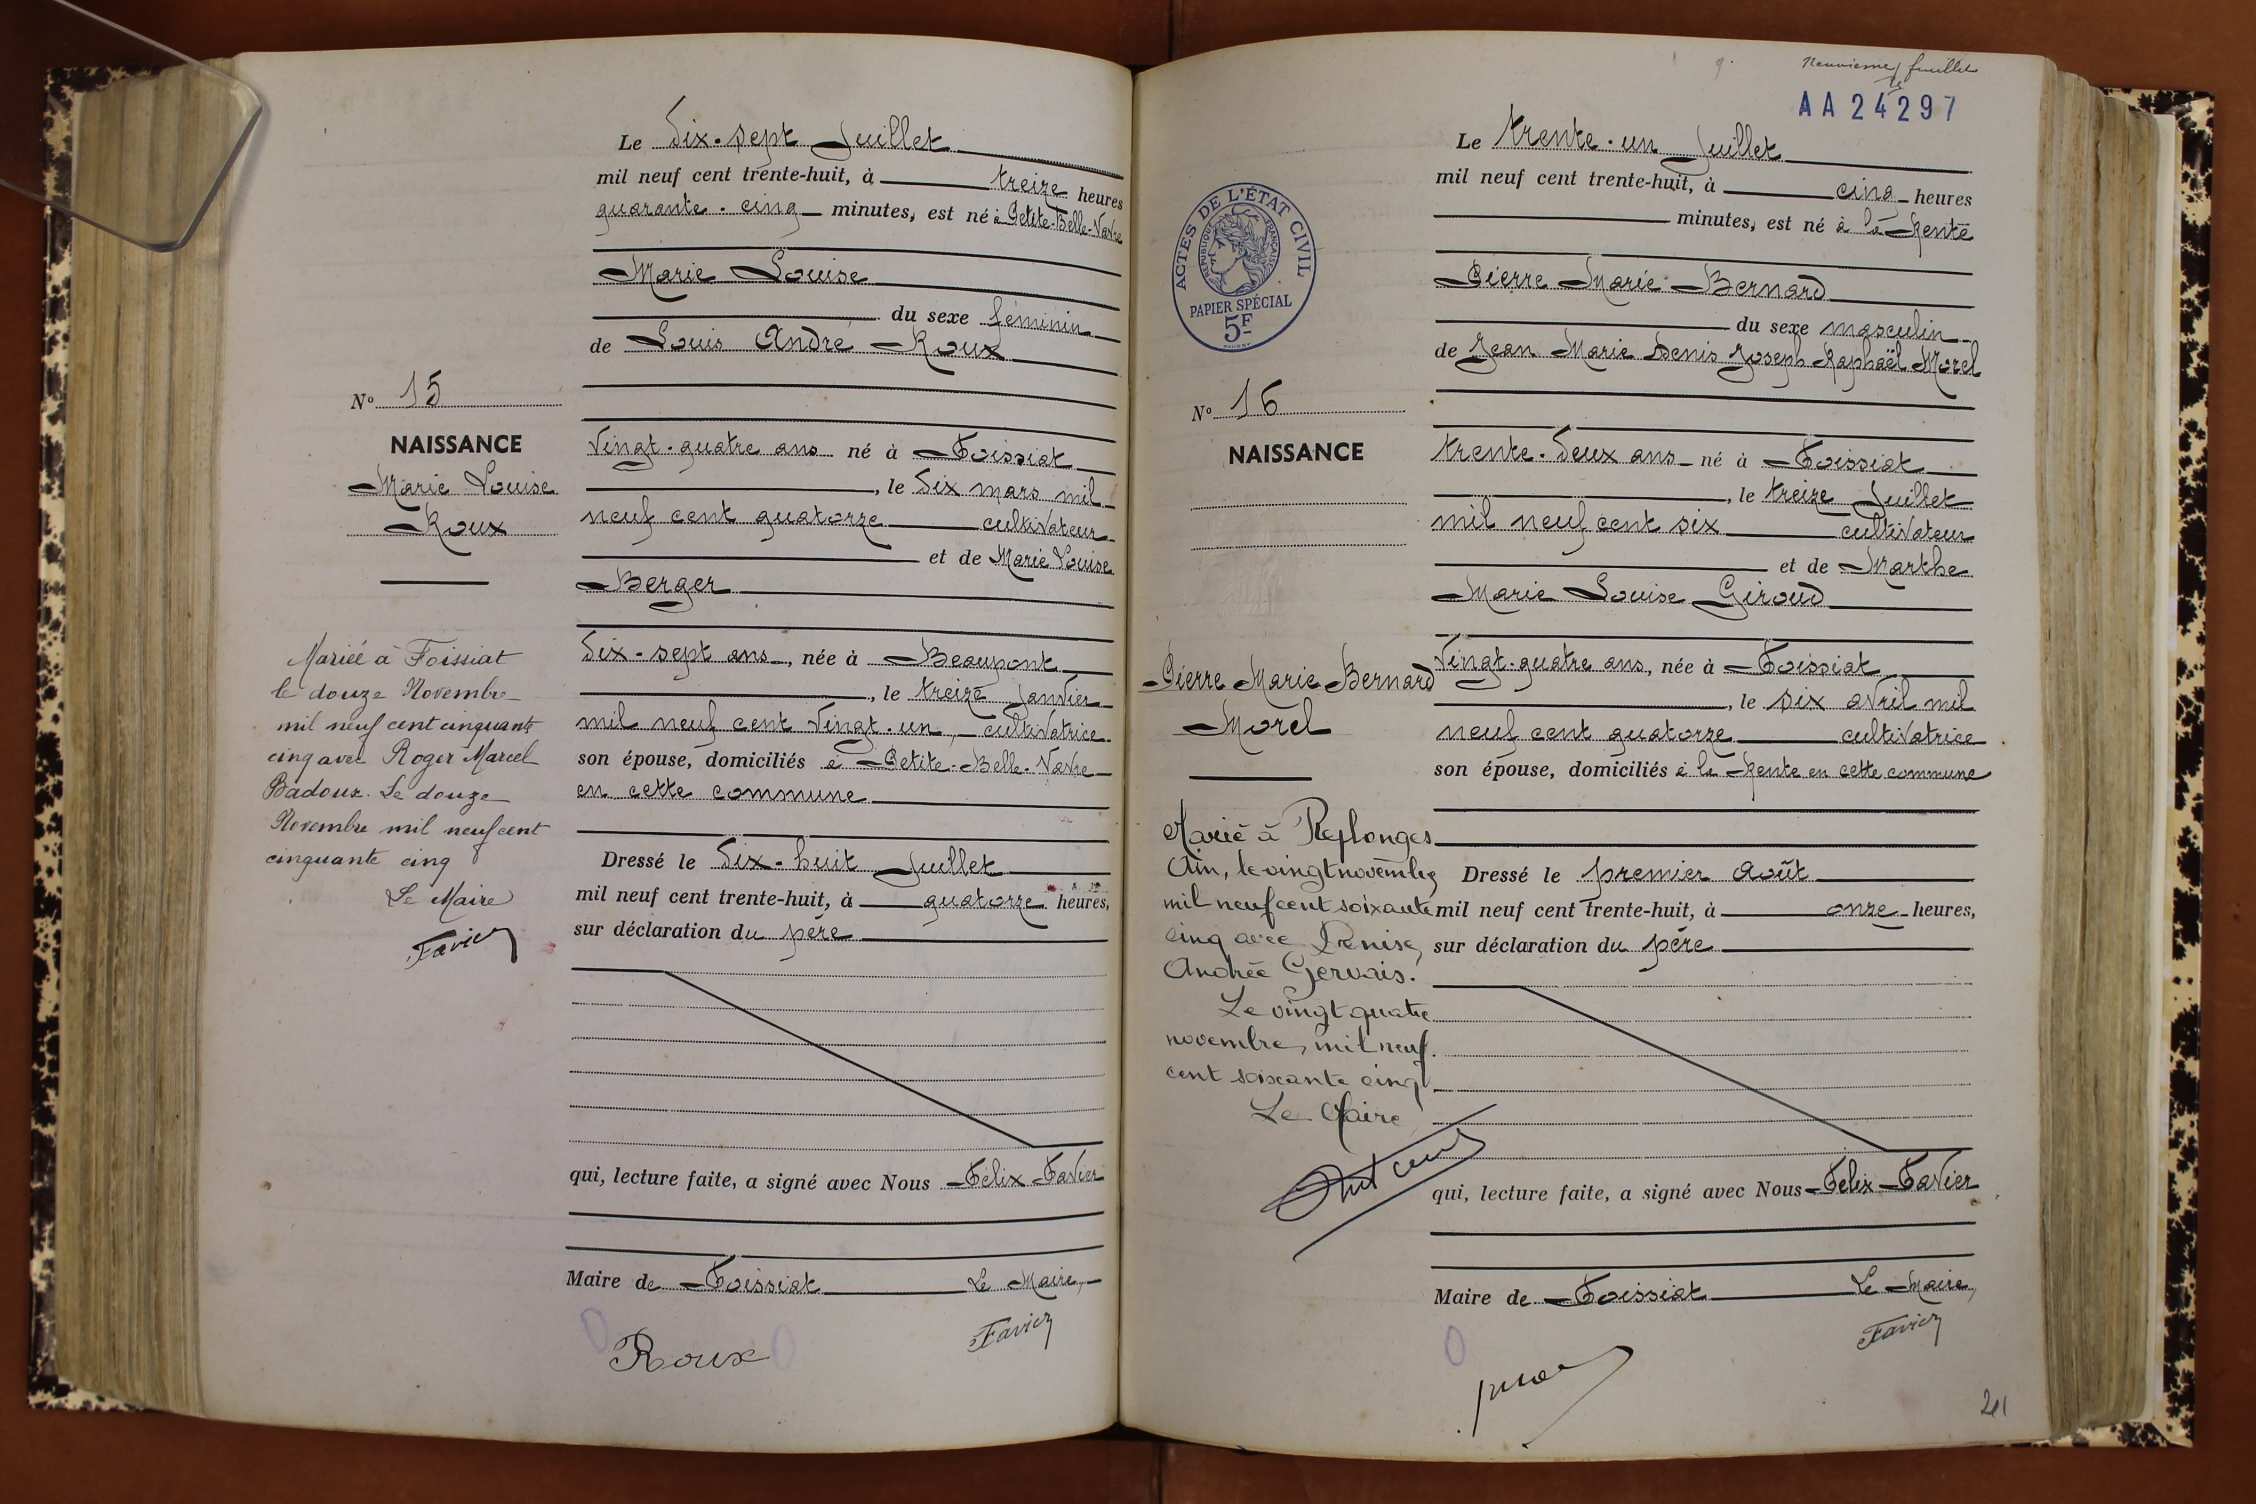 Le dix-sept Juillet
mil neuf cent trente-huit, à treize heures
quarante-cinq minutes, est né à Petite-Belle-Vavre
Marie Louise
du sexe féminin
de Louis André Roux
vingt-quatre ans né à Foissiat
, le dix mars mil
neuf cent quatorze cultivateur
et de Marie Louise
Berger
dix-sept ans, née à Beaupont
, le treize janvier
mil neuf cent vingt-un, cultivatrice
son épouse, domiciliés à Petite-Belle-Vavre
en cette commune
Dressé le dix-huit Juillet
mil neuf cent trente-huit, à quatorze heures,
sur déclaration du père
qui, lecture faite, a signé avec Nous Félix Favier
Maire de Foissiat Le Maire,
Roux Favier
No 15
NAISSANCE
Marie Louise
Roux
Mariée à Foissiat
le douze Novembre
mil neuf cent cinquante
cinq avec Roger Marcel
Badoux. Le douze
Novembre mil neuf cent
cinquante cinq
Le Maire
Favier
9.
Neuvième feuillet
AA24297
ACTES DE L'ÉTAT CIVIL
RÉPUBLIQUE FRANÇAISE
PAPIER SPÉCIAL
5F
Le trente-un Juillet
mil neuf cent trente-huit, à cinq heures
minutes, est né à la Rente
Pierre Marie Bernard
du sexe masculin
de Jean Marie Denis Joseph Raphaël Morel
trente-deux ans né à Foissiat
, le treize Juillet
mil neuf cent six cultivateur
et de Marthe
Marie Louise Giroud
vingt-quatre ans, née à Foissiat
, le six avril mil
neuf cent quatorze cultivatrice
son épouse, domiciliés à la Rente en cette commune
Dressé le premier août
mil neuf cent trente-huit, à onze heures,
sur déclaration du père
qui, lecture faite, a signé avec Nous Félix Favier
Maire de Foissiat Le Maire,
Favier
No 16
NAISSANCE
Pierre Marie Bernard
Morel
Marié à Replonges
Ain, le vingt novembre
mil neuf cent soixante
cinq avec Denise,
Andrée Gervais.
Le vingt quatre
novembre, mil neuf
cent soixante cinq
Le Maire